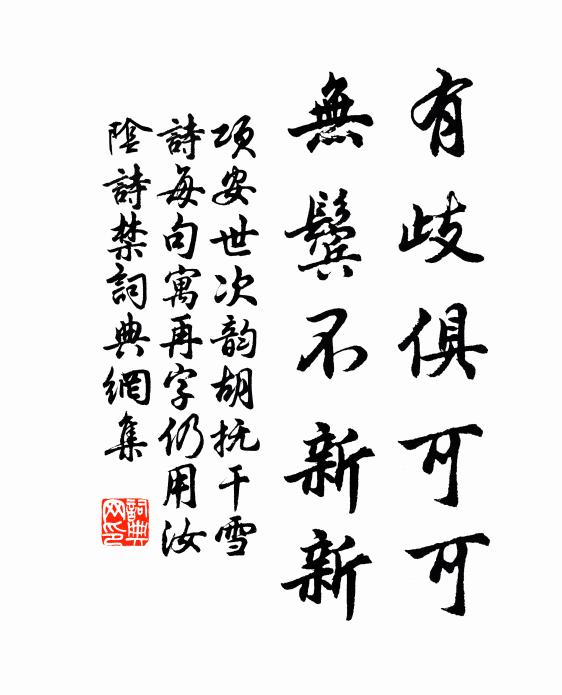 有歧俱可可
無鬓不新新
項安世次韵胡抚干雪
詩每句寓再字仍用汝
陰詩禁詞典網集
詞典网印